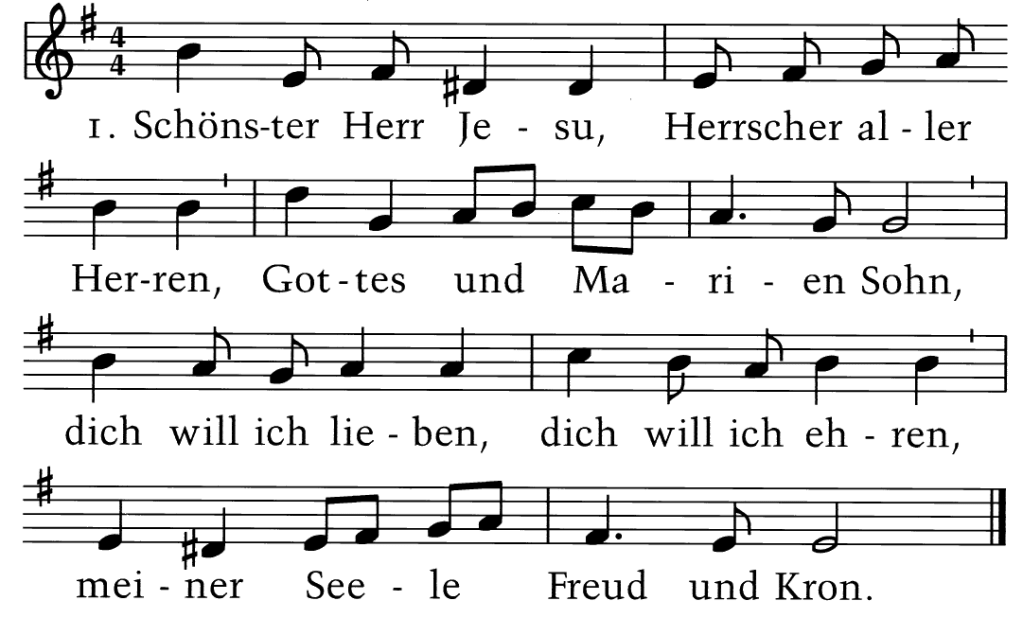 4
4
1. Schöns-ter Herr Je - su, Herrscher al - ler
Her-ren, Got-tes und Ma - ri - en Sohn,
dich will ich lie - ben, dich will ich eh - ren,
mei - ner See - le Freud und Kron.